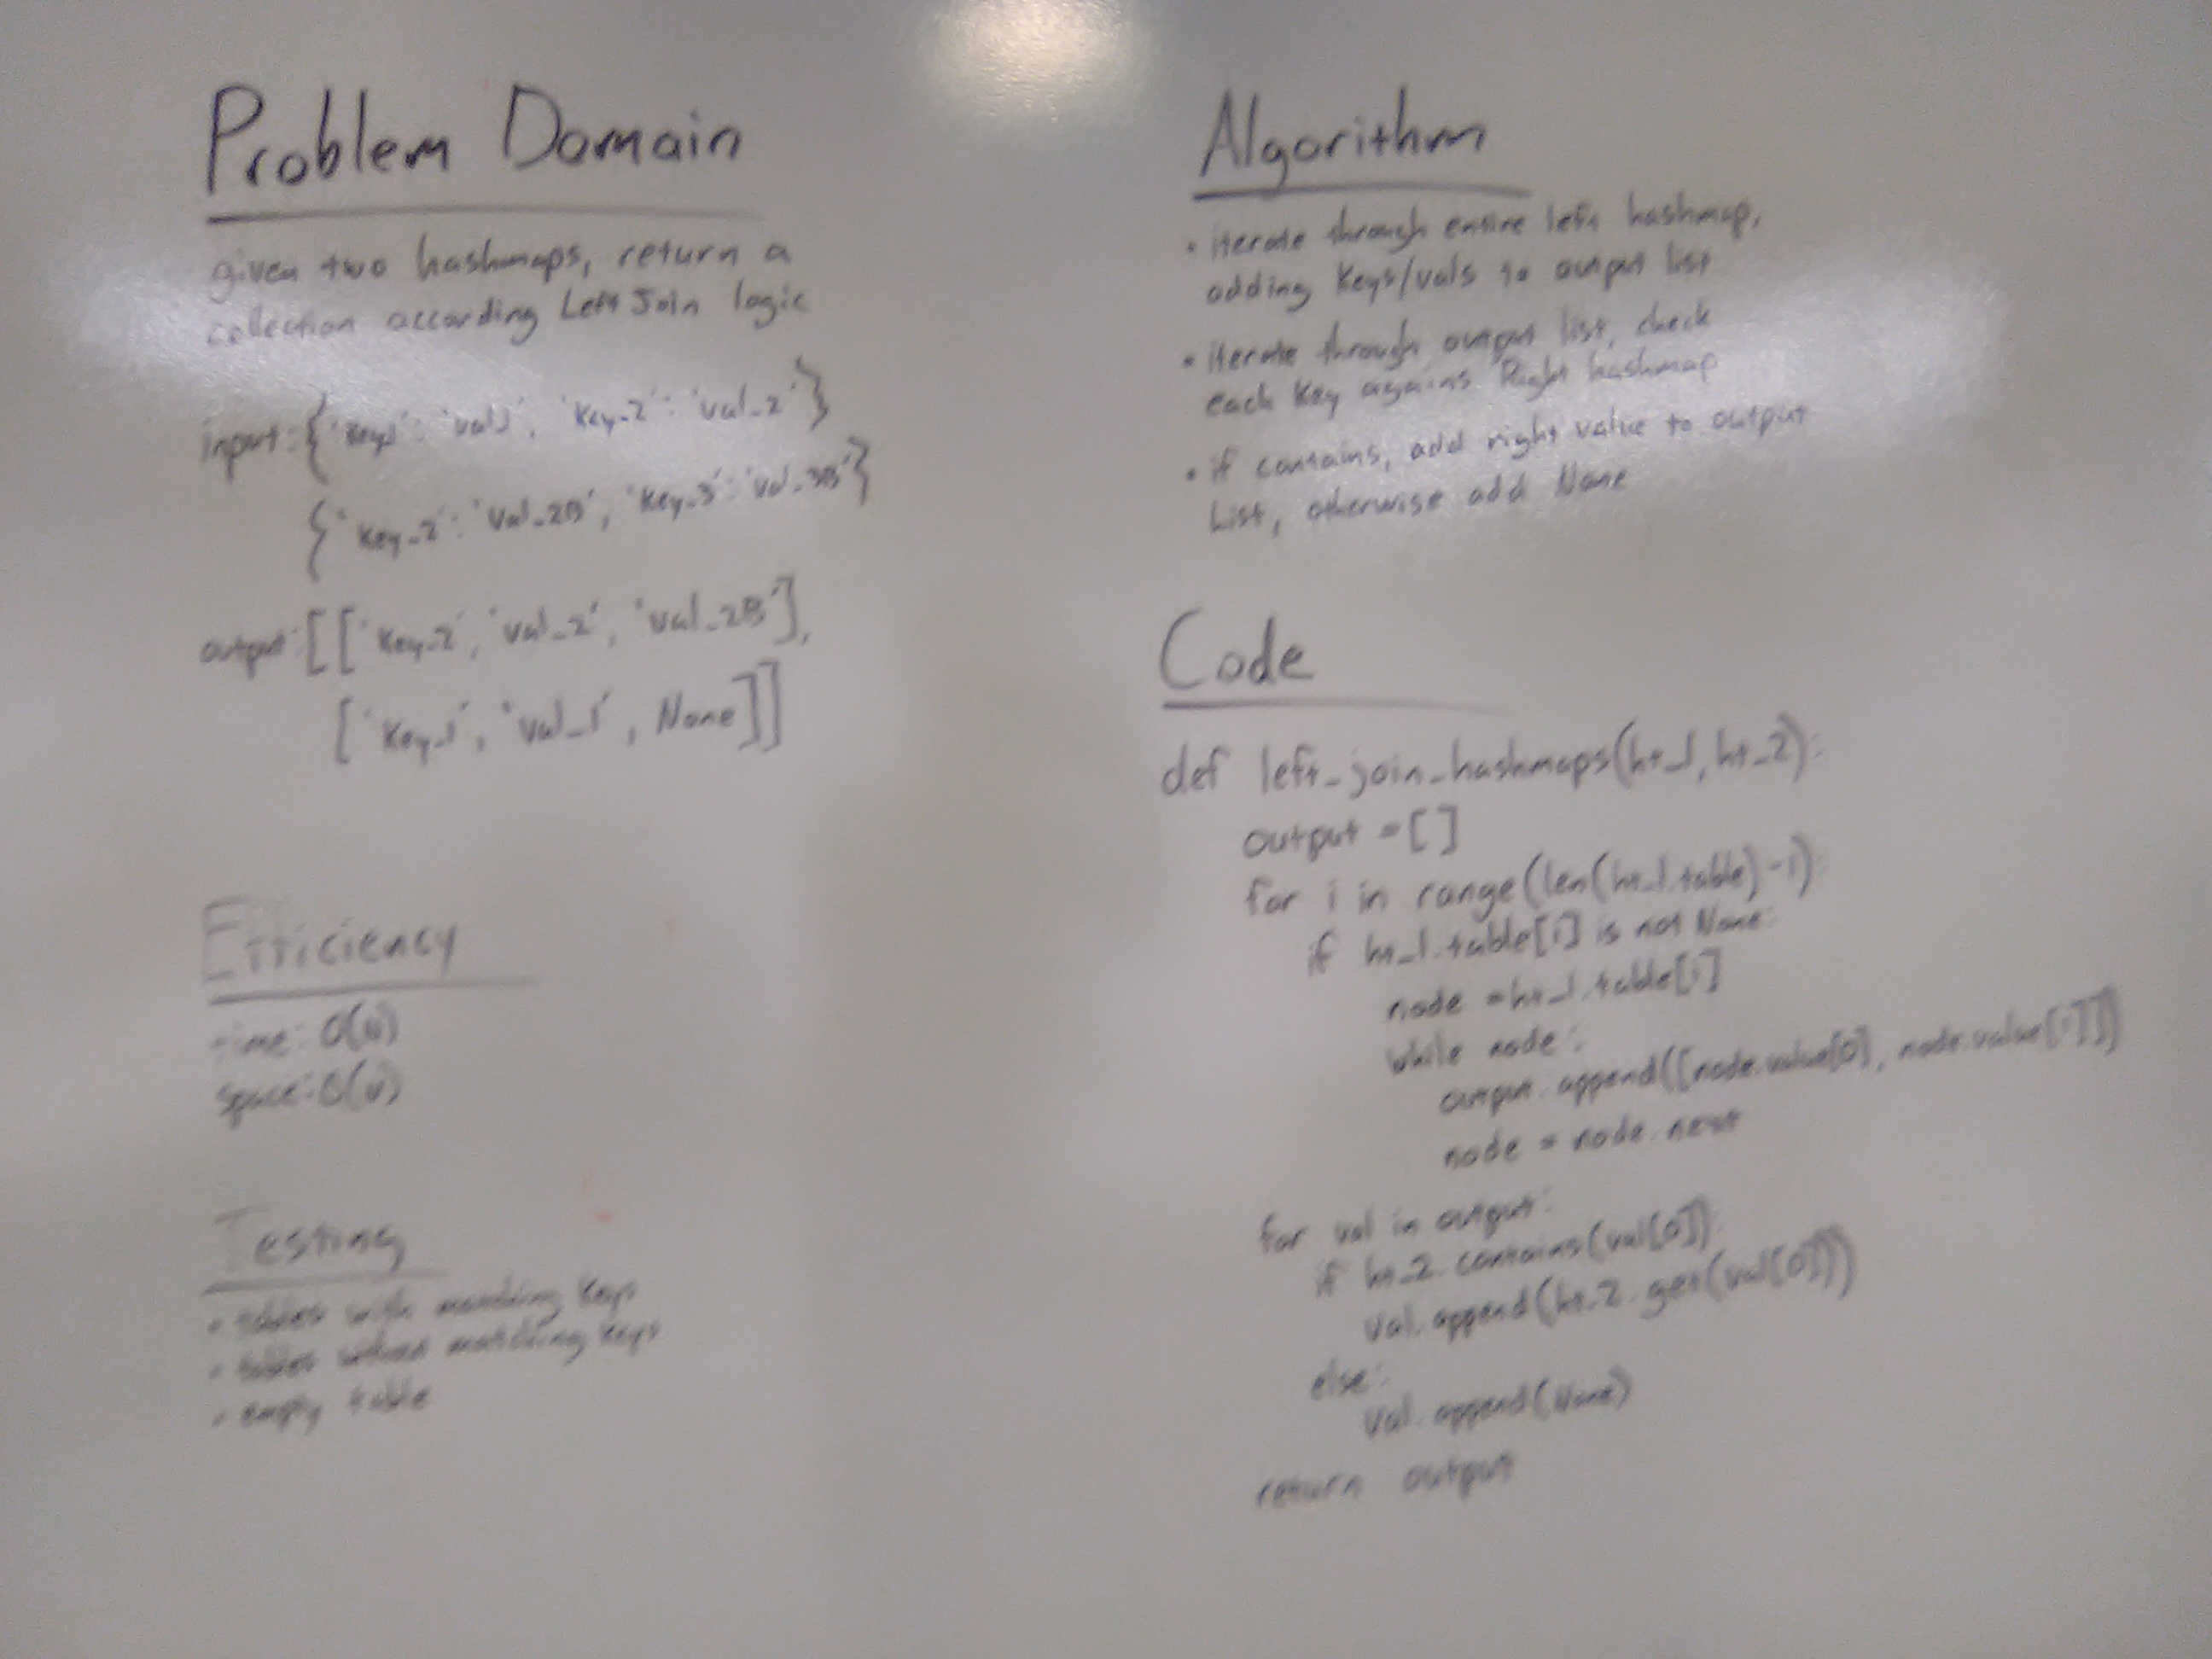 Problem Domain
given two hashmaps, return a
collection according Left Join logic
input: {'Key1': 'val1', 'Key_2': 'val_2'}
{'Key_2': 'Val_2B', 'Key_3': 'val_3B'}
output: [['Key_2', 'val_2', 'val_2B'],
['Key_1', 'val_1', None]]
Efficiency
time: O(N)
space: O(N)
Testing
• tables with matching Keys
• tables without matching Keys
• empty table
Algorithm
• iterate through entire left hashmap,
adding Keys/vals to output list
• iterate through output list, check
each Key agains Right hashmap
• if contains, add right value to output
List, otherwise add None
Code
def left_join_hashmaps(ht_1, ht_2):
output = []
for i in range(len(ht_1.table)-1):
if ht_1.table[i] is not None:
node = ht_1.table[i]
while node:
output.append([node.value[0], node.value[1]])
node = node.next
for val in output:
if ht_2.contains(val[0]):
val.append(ht_2.get(val[0]))
else:
val.append(None)
return output